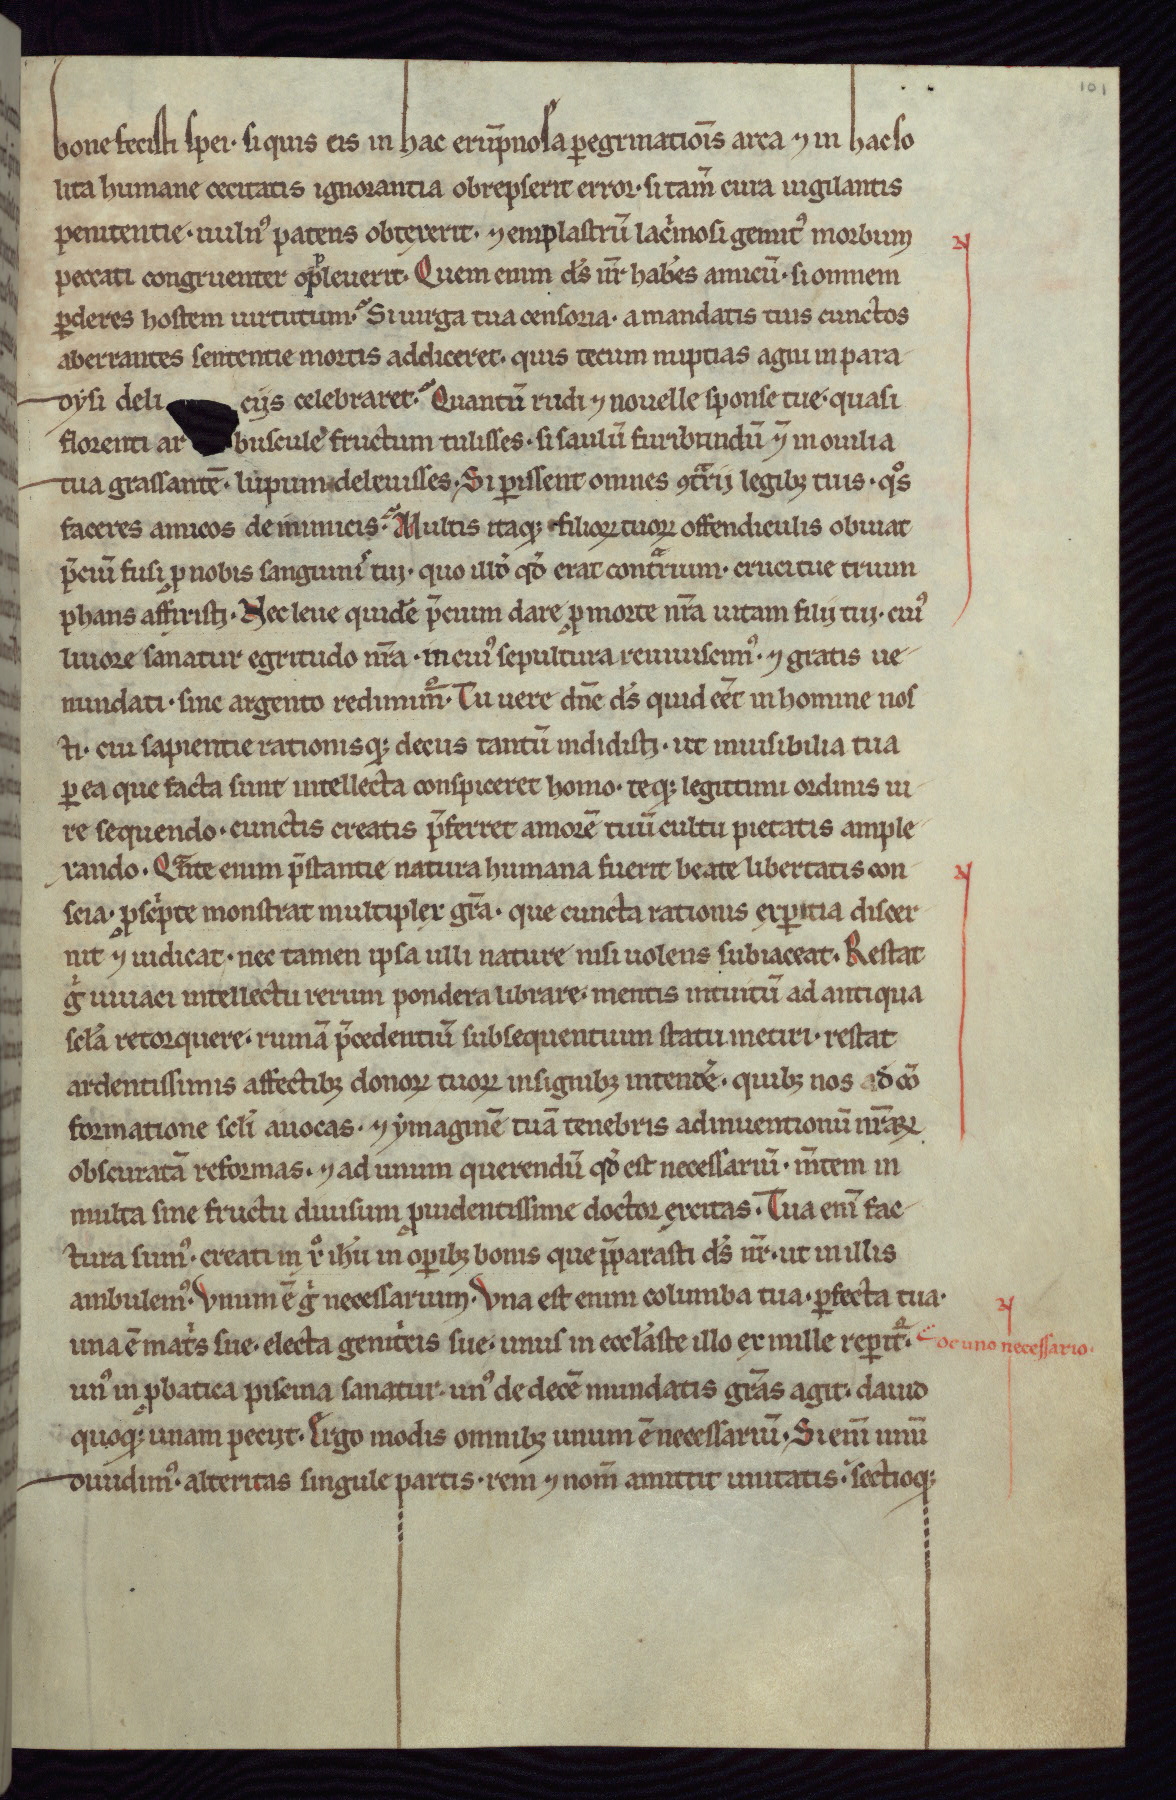 101
bone fecisti spei· si quis eis in hac erūpnosa ꝑegrinatiōis area ⁊ in hac so
lita humane cecitatis ignorantia obrepserit error· si tam̄ cura uigilantis
penitentie· uuln᷒ patens obtexerit· ⁊ emplastrū lac̾mosi gemit᷒ morbum
peccati congruenter opp̄leuerit· Quem enim ds̄ nr̄ habēs amicū· si omnem
ꝑderes hostem uirtutum· Si uirga tua censoria· a mandatis tuis cunctos
aberrantes sententie mortis addiceret· quis tecum nuptias agni in para
dysi deli cijs celebraret· Quantū rudi ⁊ nouelle sponse tue· quasi
florenti ar buscule fructum tulisses· si saulū furibundū ⁊ in ouilia
tua grassantē· lupum deleuisses· Si ꝑissent omnes ꝯtrȧrij legibꝫ tuis· qᷤos
faceres amicos de inimicis· Multis itaqꝫ filioꝝ tuoꝝ offendiculis obuiat
p̄ciū fusi ꝓ nobis sanguinis tui· quo illd̄ qd̄ erat contrarium· cruci tue trium
phans affixisti· Nec leue quidē p̄cium dare ꝓ morte nr̄a uitam filij tui· cui᷒
liuore sanatur egritudo nr̄a· in cui᷒ sepultura reuiuiscim᷒· ⁊ gratis ue
nundati· sine argento redimim᷒· Tu uere dn̄e ds̄ quid eēt in homine nos
ti· cui sapientie rationisqꝫ decus tantū indidisti· ut inuisibilia tua
ꝑ ea que facta sunt intellecta conspiceret homo· teqꝫ legitimi ordinis iu
re sequendo· cunctis creatis p̄ferret amorē tuū cultu pietatis ample
xando· Quante enim p̄stantie natura humana fuerit beate libertatis con
scia· ꝓ se̾pte monstrat multiplex gr̄a· que cuncta rationis exꝑitia discer
nit ⁊ iudicat· nec tamen ipsa ulli nature nisi uolens subiaceat· Restat
g̾ uiuaci intellectu rerum pondera librare· mentis intuitū ad antiqua
scl̄a retorquere· ruinā p̄cedentiū subsequentium statu metiri· restat
ardentissimis affectibꝫ donoꝝ tuoꝝ insignibꝫ intendē· quibꝫ nos ad cō
formatione scl̄i auocas· ⁊ ymaginē tuā tenebris adinuentionū nr̄aꝝ
obscuratā reformas· ⁊ ad unum querendū qd̄ est necessariū· m̄tem in
multa sine fructu diuisum ꝓuidentissime doctor excitas· Tua eni᷒ fac
tura sum᷒· creati in xo ihū in oꝑibꝫ bonis que p̄parasti ds̄ nr̄· ut in illis
ambulem᷒· Vnum ē g̾ necessarium· Vna est enim columba tua· ꝑfecta tua·
una ē mat̾s sue· electa genit̾cis sue· unus in eccl̄aste illo ex mille reꝑit̾·
De uno necessario·
un᷒ in ꝓbatica piscina sanatur· un᷒ de decē mundatis grās agit· dauid
quoqꝫ unam pecijt· Ergo modis omnibꝫ unum ē necessariū· Si eni᷒ unū
diuidim᷒· alteritas singule partis· rem ⁊ nom̄ amittit unitatis· sectioqꝫ